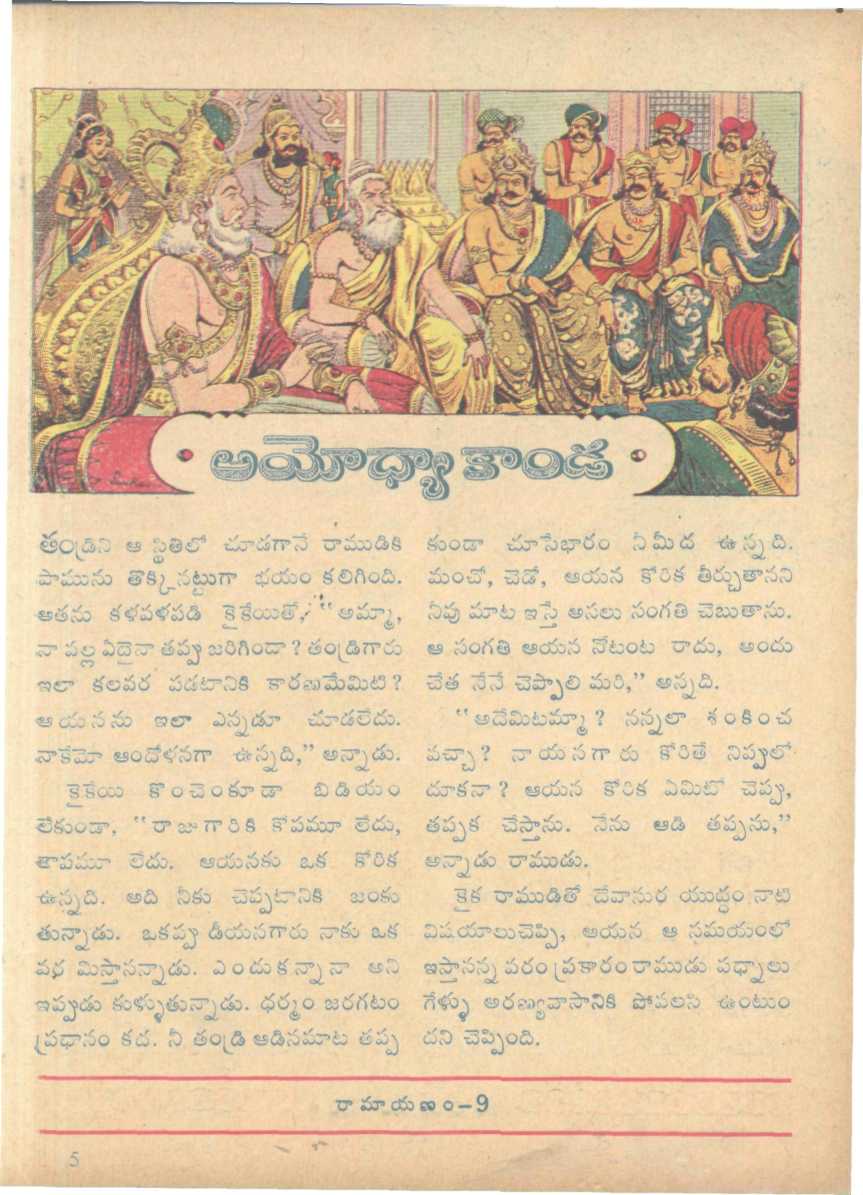 అయోధ్యా కాండ
తండ్రిని ఆ స్థితిలో చూడగానే రాముడికి
పామును తొక్కినట్టుగా భయం కలిగింది.
అతను కళవళపడి కైకేయితో, "అమ్మా,
నా వల్ల ఏదైనా తప్పు జరిగిందా? తండ్రిగారు
ఇలా కలవర పడటానికి కారణమేమిటి?
ఆయనను ఇలా ఎన్నడూ చూడలేదు.
నాకేమో ఆందోళనగా ఉన్నది," అన్నాడు.
కైకేయి కొంచెంకూడా బిడియం
లేకుండా, "రాజుగారికి కోపమూ లేదు,
తాపమూ లేదు. ఆయనకు ఒక కోరిక
ఉన్నది. అది నీకు చెప్పటానికి జంకు
తున్నాడు. ఒకప్పు డీయనగారు నాకు ఒక
వర మిస్తానన్నాడు. ఎందుకన్నానా అని
ఇప్పుడు కుళ్ళుతున్నాడు. ధర్మం జరగటం
ప్రధానం కద. నీ తండ్రి ఆడినమాట తప్ప
కుండా చూసేభారం నీమీద ఉన్నది.
మంచో, చెడో, ఆయన కోరిక తీర్చుతానని
నీవు మాట ఇస్తే అసలు సంగతి చెబుతాను.
ఆ సంగతి ఆయన నోటంట రాదు, అందు
చేత నేనే చెప్పాలి మరి," అన్నది.
"అదేమిటమ్మా? నన్నలా శంకించ
వచ్చా? నాయనగారు కోరితే నిప్పులో
దూకనా? ఆయన కోరిక ఏమిటో చెప్పు,
తప్పక చేస్తాను. నేను ఆడి తప్పను,"
అన్నాడు రాముడు.
కైక రాముడితో దేవాసుర యుద్ధం నాటి
విషయాలుచెప్పి, ఆయన ఆ సమయంలో
ఇస్తానన్న వరం ప్రకారం రాముడు పధ్నాలు
గేళ్ళు అరణ్యవాసానికి పోవలసి ఉంటుం
దని చెప్పింది.
రామాయణం-9
5